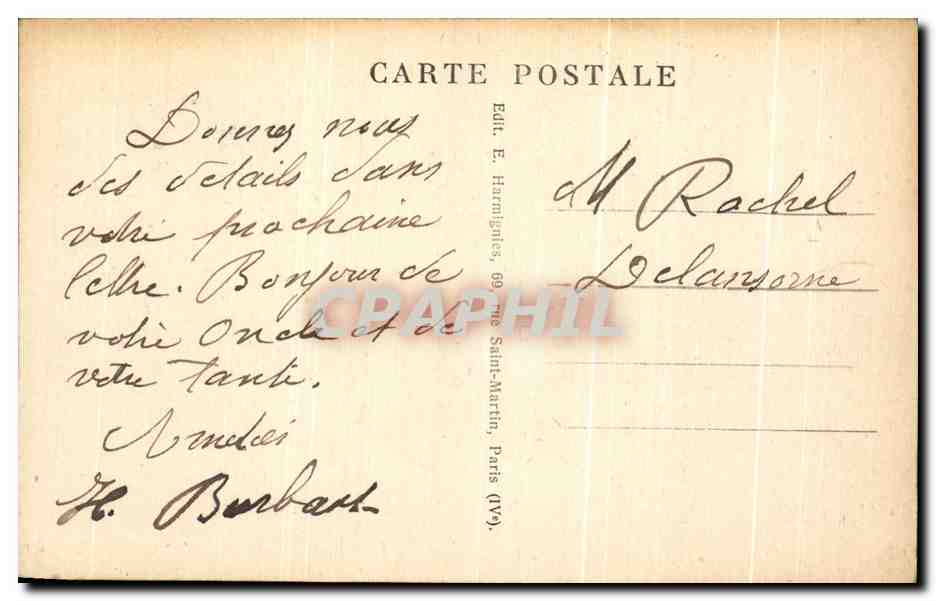 CARTE POSTALE
Donnez nous
des details dans
votre prochaine
lettre. Bonjour de
votre Oncle et de
votre Tante.
H. Burbart
Edit. E. Harmignies, 69, rue Saint-Martin, Paris (IVe).
M Rachel
Delansorne
CPAPHIL